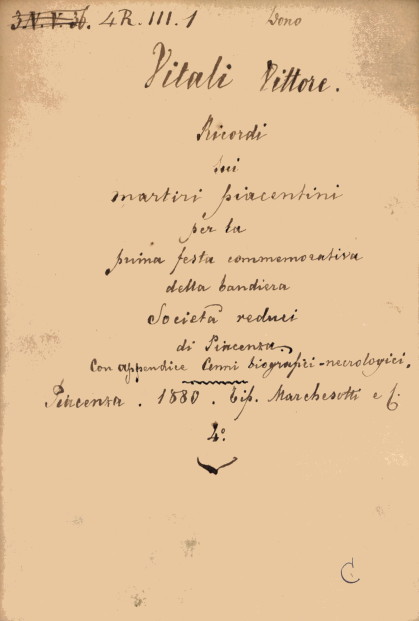 3.N.V.H. 4R.III.1 Dono
Vitali Vittore.
Ricordi
sui
martiri piacentini
per la
prima festa commemorativa
della bandiera
Società reduci
di Piacenza
Con appendice Cenni biografici-necrologici.
Piacenza . 1880 . Tip. Marchesotti e C.
4°.
C